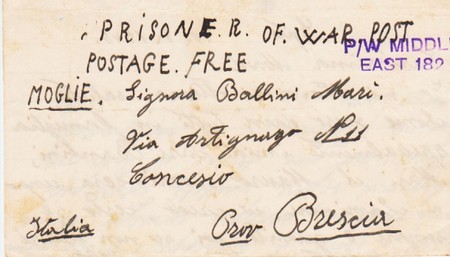 PRISONE.R. OF. WAR POST
P/W MIDDL
POSTAGE. FREE
EAST 182
MOGLIE. Signora Ballini Mari.
Via Artignago N11
Concesio
Italia Prov Brescia